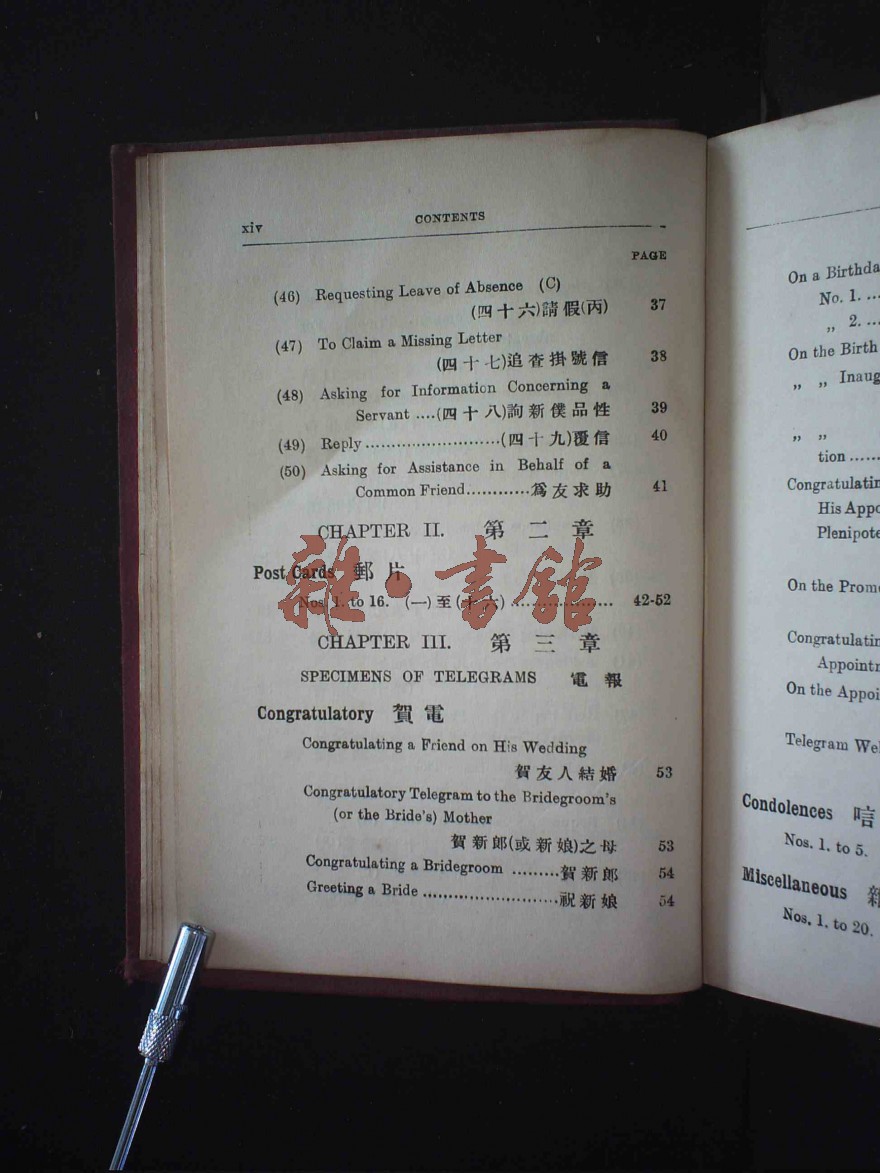 xiv CONTENTS
PAGE
(46) Requesting Leave of Absence (C)
(四十六)請假(丙) 37
(47) To Claim a Missing Letter
(四十七)追查掛號信 38
(48) Asking for Information Concerning a
Servant ....(四十八)詢新僕品性 39
(49) Reply...........................(四十九)覆信 40
(50) Asking for Assistance in Behalf of a
Common Friend............爲友求助 41
CHAPTER II. 第二章
Post Cards 郵片
Nos. 1. to 16. (一)至(十六) .................... 42-52
雜·書館
CHAPTER III. 第三章
SPECIMENS OF TELEGRAMS 電報
Congratulatory 賀電
Congratulating a Friend on His Wedding
賀友人結婚 53
Congratulatory Telegram to the Bridegroom's
(or the Bride's) Mother
賀新郎(或新娘)之母 53
Congratulating a Bridegroom .........賀新郎 54
Greeting a Bride ..........................祝新娘 54
On a Birthda
No. 1. ...
„ 2. ...
On the Birth
„ „ Inaug
„ „
tion ......
Congratulatin
His Appo
Plenipote
On the Promo
Congratulatin
Appointm
On the Appoi
Telegram Wel
Condolences 唁
Nos. 1. to 5.
Miscellaneous 雜
Nos. 1. to 20.